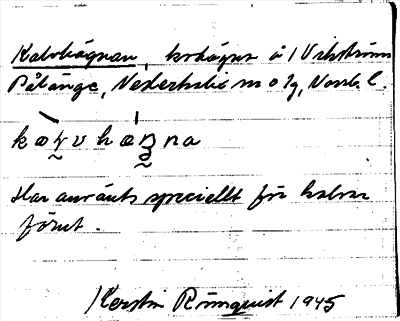 Kalvhägnan, kohägn å i Vikström
Pålänge, Nederkalix m o lg, Norrb. l.
kæɽvhæŋna
Har använts speciellt för kalvar
förut.
Kerstin Rönnquist 1945